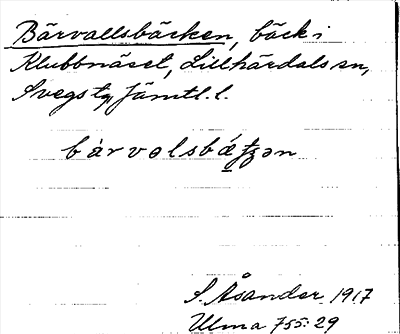 Bärvallsbäcken, bäck i
Klubbnäset, Lillhärdals sn,
Svegs tg Jämtl. l.
bárvəlsbǽ̱ʈʂən
S. Åsander 1917
Ulma 755:29